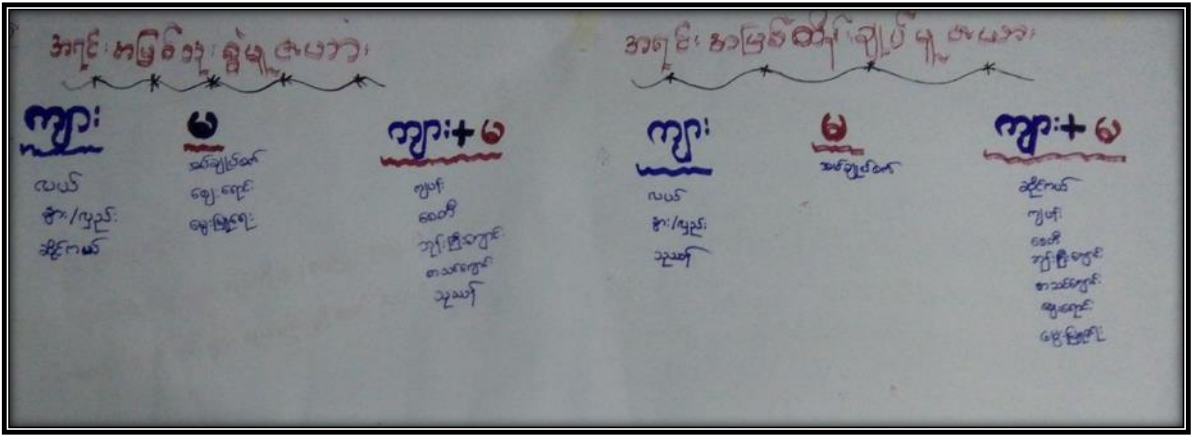 အရင်းအမြစ်သုံးစွဲမှုဇယား
ကျား
လယ်
နွား/လှည်း
ဆိုင်ကယ်
မ
အပ်ချုပ်စက်
ဈေးရောင်း
မွေးမြူရေး
ကျား+မ
ကျပန်း
စေတီ
ဘုန်းကြီးကျောင်း
စာသင်ကျောင်း
သုသာန်
အရင်းအမြစ်ထိန်းချုပ်မှုဇယား
ကျား
လယ်
နွား/လှည်း
သုသာန်
မ
အပ်ချုပ်စက်
ကျား+မ
ဆိုင်ကယ်
ကျပန်း
စေတီ
ဘုန်းကြီးကျောင်း
စာသင်ကျောင်း
ဈေးရောင်း
မွေးမြူရေး